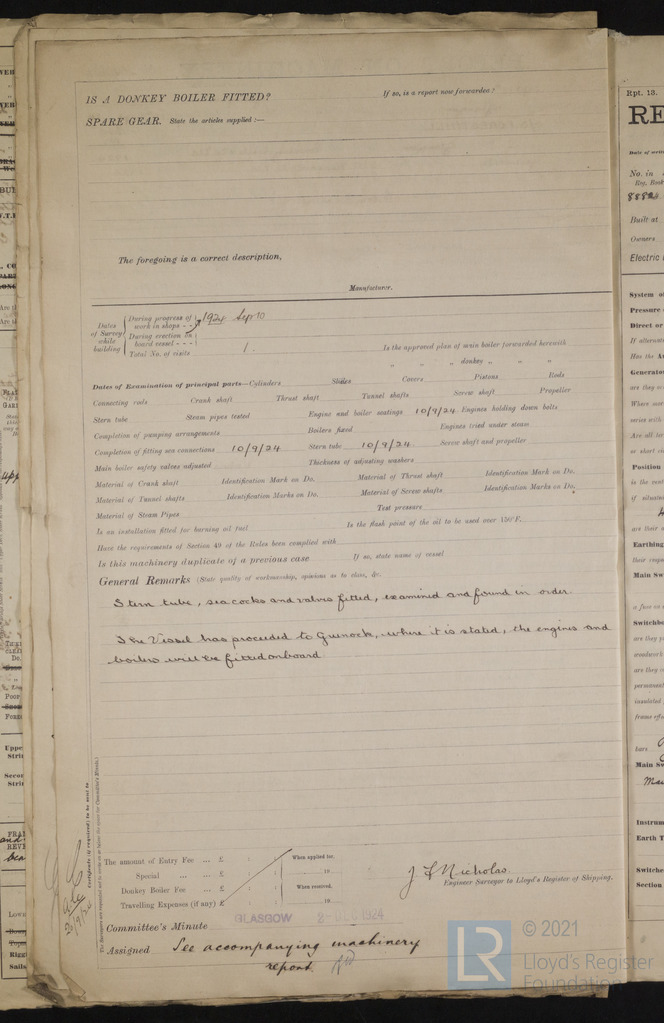 IS A DONKEY BOILER FITTED? If so, is a report now forwarded?
SPARE GEAR. State the articles supplied :—
The foregoing is a correct description,
Manufacturer.
Dates of Survey while building
During progress of work in shops - - 1924 Sep 10
During erection on board vessel - - -
Total No. of visits 1.
Is the approved plan of main boiler forwarded herewith
" " " donkey " "
Dates of Examination of principal parts—Cylinders Slides Covers Pistons Rods
Connecting rods Crank shaft Thrust shaft Tunnel shafts Screw shaft Propeller
Stern tube Steam pipes tested Engine and boiler seatings 10/9/24. Engines holding down bolts
Completion of pumping arrangements Boilers fixed Engines tried under steam
Completion of fitting sea connections 10/9/24 Stern tube 10/9/24. Screw shaft and propeller
Main boiler safety valves adjusted Thickness of adjusting washers
Material of Crank shaft Identification Mark on Do. Material of Thrust shaft Identification Mark on Do.
Material of Tunnel shafts Identification Marks on Do. Material of Screw shafts Identification Marks on Do.
Material of Steam Pipes Test pressure
Is an installation fitted for burning oil fuel Is the flash point of the oil to be used over 150°F.
Have the requirements of Section 49 of the Rules been complied with
Is this machinery duplicate of a previous case If so, state name of vessel
General Remarks (State quality of workmanship, opinions as to class, &c.
Stern tube, sea cocks and valves fitted, examined and found in order.
The Vessel has proceeded to Greenock, where it is stated, the engines and
boilers will be fitted on board
Certificate (if required) to be sent to
The amount of Entry Fee ... £ When applied for,
Special ... ... £ 19
Donkey Boiler Fee ... £ When received,
Travelling Expenses (if any) £ 19
J F Nicholas.
Engineer Surveyor to Lloyd's Register of Shipping.
Committee's Minute GLASGOW 2-DEC 1924
Assigned See accompanying machinery
report.
© 2021
Lloyd's Register
Foundation
LR
Rpt. 13.
No. in
Reg. Book
Built at
Owners
System of
Pressure
Direct or
If alternat
Has the
Generator
are they
Where
series with
Are all
or short
Position
is the
if situated
are their
Earthing
their
Main Sw
a fuse
Switchbo
are they
woodwork
are they
permanent
insulated
frame
bars
Main Sw
Instrum
Earth T
Switches
Section